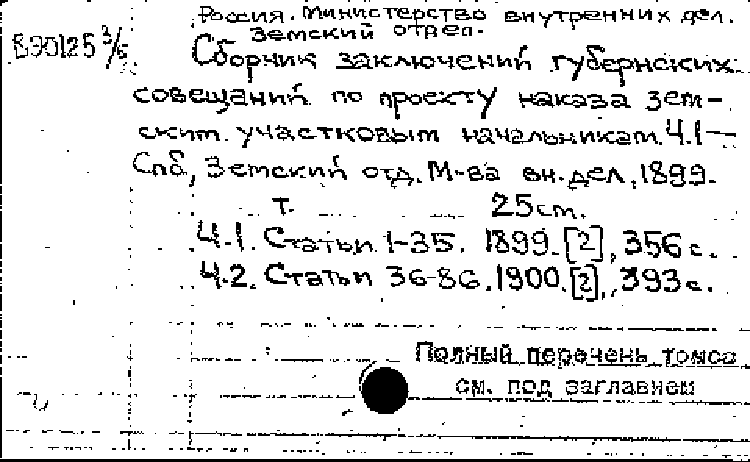 Россия. Министерство внутренних дел.
Земский отдел.
В90125 3/6
Сборник заключений губернских
совещаний по проекту наказа зем-
ским участковым начальникам. Ч.1-
Спб, Земский отд. М-ва вн. дел, 1899-
Т. 25 cm.
Ч.1. Статьи 1-35. 1899. [2], 356 с.
Ч.2. Статьи 36-86. 1900. [2], 393 с.
Полный перечень томов
см. под заглавием